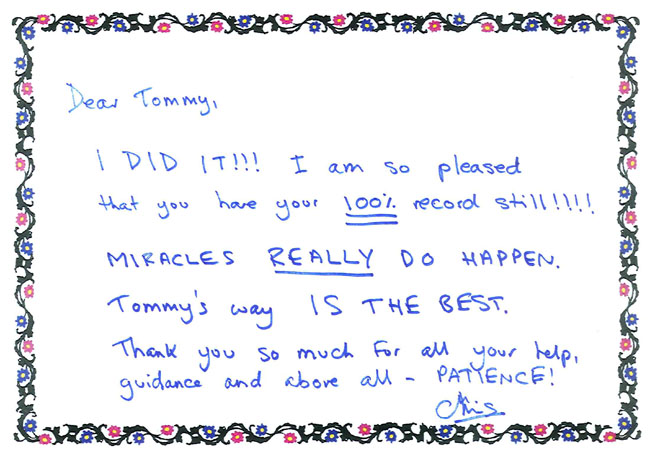 Dear Tommy,
I DID IT!!! I am so pleased
that you have your 100% record still!!!!
MIRACLES REALLY DO HAPPEN.
Tommy's way IS THE BEST.
Thank you so much for all your help,
guidance and above all - PATIENCE!
Chris